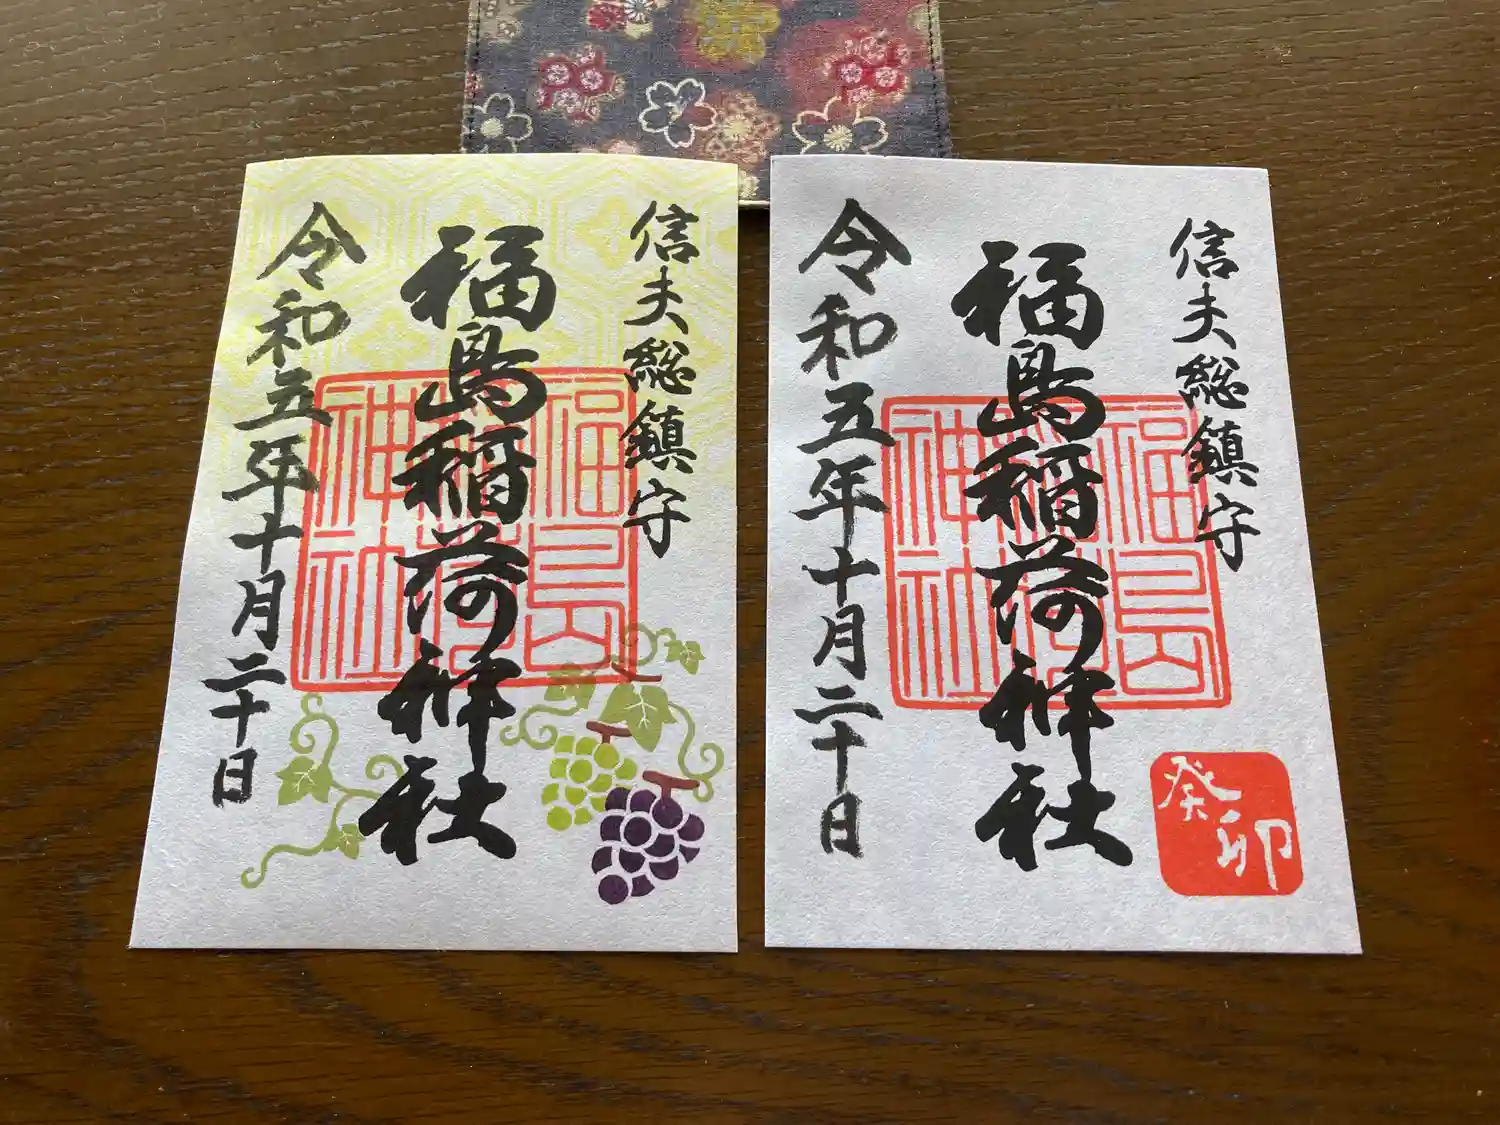 信夫総鎮守
福島稲荷神社
令和五年十月二十日
福島稲荷神社
信夫総鎮守
福島稲荷神社
令和五年十月二十日
福島稲荷神社
癸卯